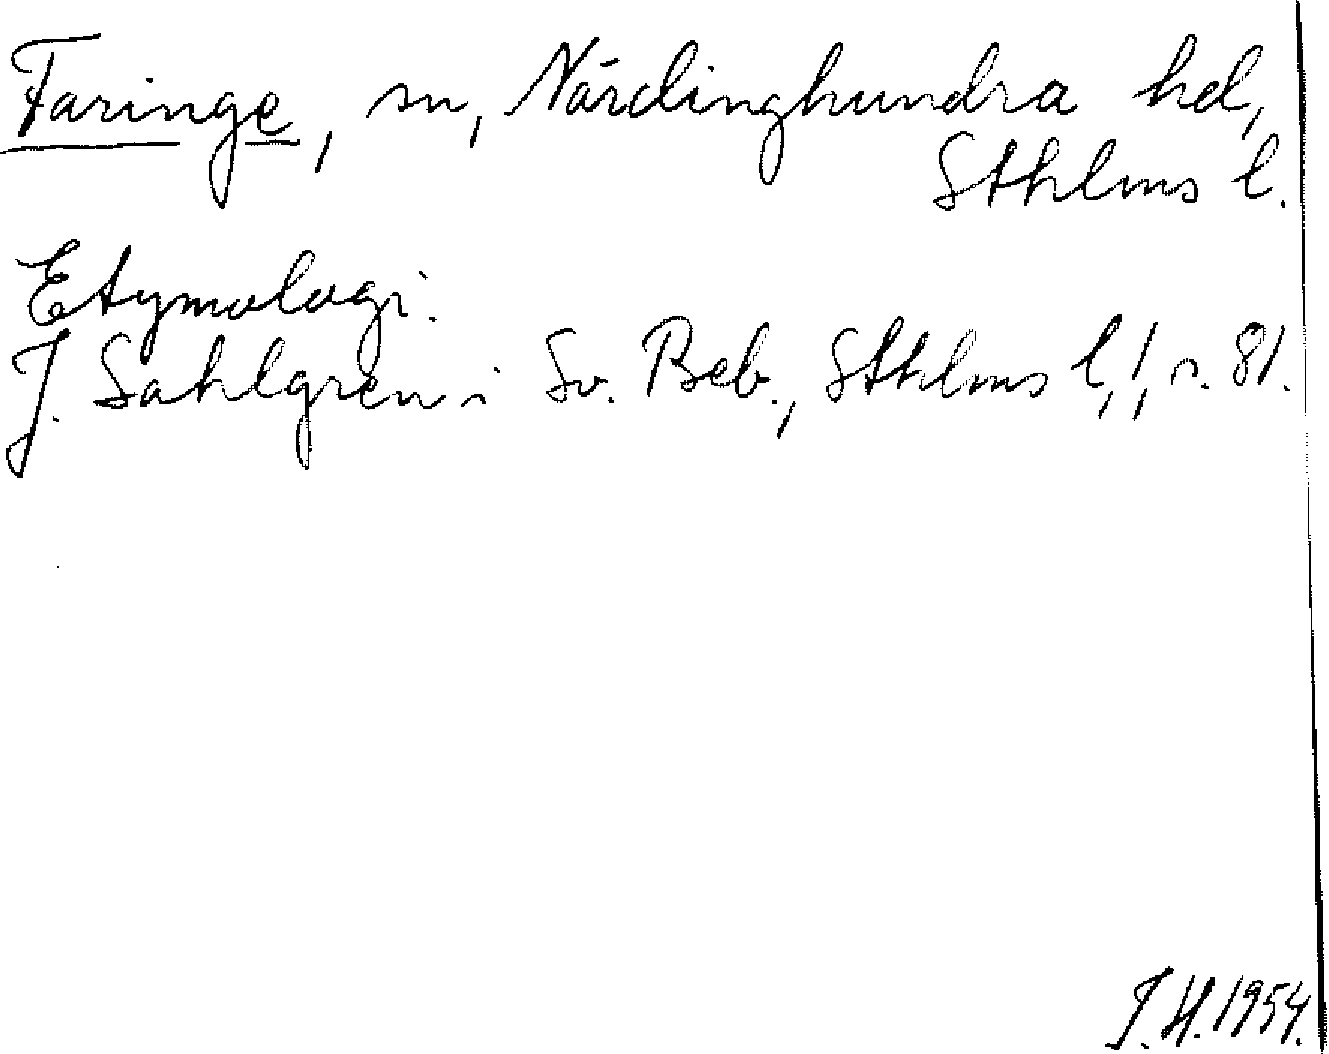 Faringe, sn, Närdinghundra hd,
Sthlms l.
Etymologi.
J. Sahlgren i Sv. Beb., Sthlms l, 1, s. 81.
J. H. 1954.